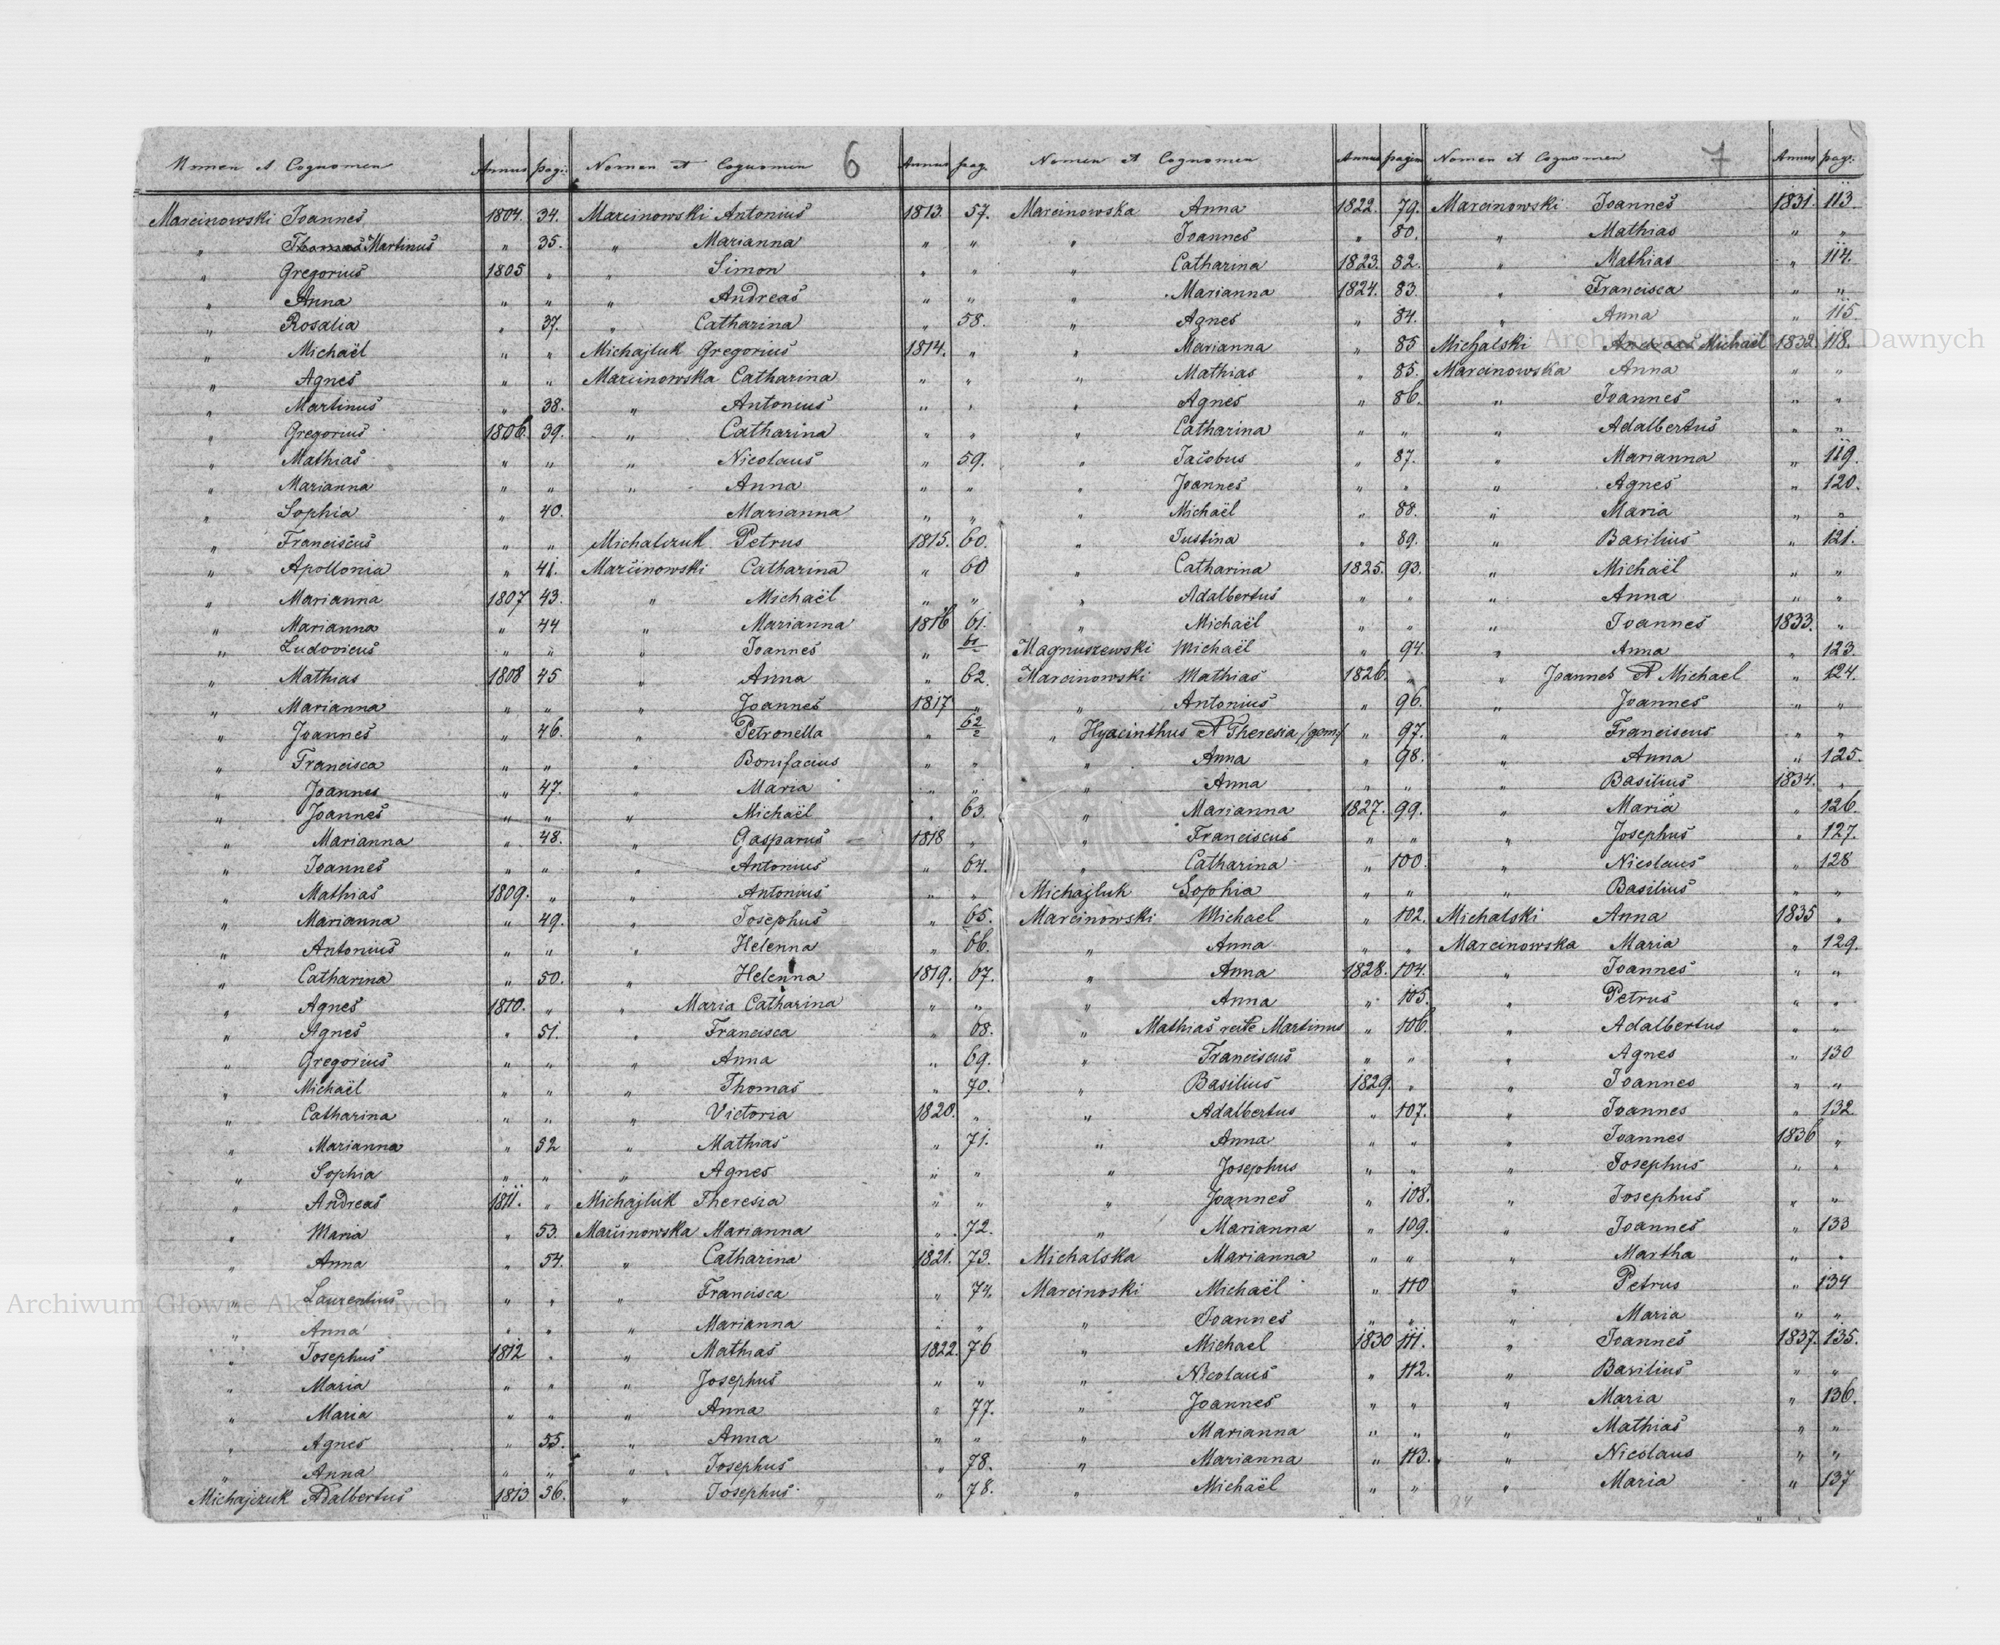 Nomen et Cognomen Annus pagi:
Marcinowski Joannes 1804. 34.
„ Thomas Martinus „ 35.
„ Gregorius 1805 „
„ Anna „ „
„ Rosalia „ 37.
„ Michaël „ „
„ Agnes „ „
„ Martinus „ 38.
„ Gregorius 1806. 39.
„ Mathias „ „
„ Marianna „ „
„ Sophia „ 40.
„ Franciscus „ „
„ Apollonia „ 41.
„ Marianna 1807 43.
„ Marianna „ 44
„ Ludovicus „ „
„ Mathias 1808 45
„ Marianna „ „
„ Joannes „ 46.
„ Francisca „ „
„ Joannes „ 47.
„ Joannes „ „
„ Marianna „ 48.
„ Joannes „ „
„ Mathias 1809. „
„ Marianna „ 49.
„ Antonius „ „
„ Catharina „ 50.
„ Agnes 1810. „
„ Agnes „ 51.
„ Gregorius „ „
„ Michaël „ „
„ Catharina „ „
„ Marianna „ 52
„ Sophia „ „
„ Andreas 1811. „
„ Maria „ 53.
„ Anna „ 54.
„ Laurentius „ „
„ Anna „ „
„ Josephus 1812 „
„ Maria „ „
„ Maria „ „
„ Agnes „ 55.
„ Anna „ „
Michajczuk Adalbertus 1813 56.
Nomen et Cognomen 6 Annus pag.
Marcinowski Antonius 1813. 57.
„ Marianna „ „
„ Simon „ „
„ Andreas „ „
„ Catharina „ 58.
Michajluk Gregorius 1814. „
Marcinowska Catharina „ „
„ Antonius „ „
„ Catharina „ „
„ Nicolaus „ 59.
„ Anna „ „
Marianna „ „
Michalczuk Petrus 1815. 60.
Marcinowski Catharina „ 60
„ Michaël „ „
„ Marianna 1816 61.
„ Joannes „ 61/2
„ Anna „ 62.
„ Joannes 1817 „
„ Petronella „ 62/2
„ Bonifacius „ „
„ Maria „ „
„ Michaël „ 63.
„ Gasparus 1818 „
„ Antonius „ 64.
„ Antonius „ „
„ Josephus „ 65.
„ Helenna „ 66.
„ Helenna 1819. 67.
„ Maria Catharina „ „
„ Francisca „ 68.
„ Anna „ 69.
„ Thomas „ 70.
„ Victoria 1820. „
„ Mathias „ 71.
„ Agnes „ „
Michajluk Theresia „ „
Marcinowska Marianna „ 72.
„ Catharina 1821. 73.
„ Francisca „ 74.
„ Marianna „ „
„ Mathias 1822. 76
„ Josephus „ „
„ Anna „ 77.
„ Anna „ „
„ Josephus „ 78.
„ Josephus „ 78.
Nomen et Cognomen Annus pagin
Marcinowska Anna 1822. 79.
„ Joannes „ 80.
„ Catharina 1823. 82.
„ Marianna 1824. 83.
„ Agnes „ 84.
„ Marianna „ 85
„ Mathias „ 85.
„ Agnes „ 86.
„ Catharina „ „
„ Jacobus „ 87.
„ Joannes „ „
„ Michaël „ 88.
„ Justina „ 89.
„ Catharina 1825. 93.
„ Adalbertus „ „
„ Michaël „ „
Magnuszewski Michaël „ 94.
Marcinowski Mathias 1826. „
„ Antonius „ 96.
„ Hyacinthus et Theresia /gem/ „ 97.
„ Anna „ 98.
„ Anna „ „
„ Marianna 1827. 99.
„ Franciscus „ „
„ Catharina „ 100.
Michajluk Sophia „ „
Marcinowski Michael „ 102.
„ Anna „ „
„ Anna 1828. 104.
„ Anna „ 105.
„ Mathias recte Martinus „ 106.
„ Franciscus „ „
„ Basilius 1829. „
„ Adalbertus „ 107.
„ Anna „ „
„ Josephus „ „
„ Joannes „ 108.
„ Marianna „ 109.
Michalska Marianna „ „
Marcinoski Michaël „ 110
„ Joannes „ „
„ Michael 1830 111.
„ Nicolaus „ 112.
„ Joannes „ „
„ Marianna „ „
„ Marianna „ 113.
„ Michaël „ „
Nomen et Cognomen 7 Annus pag:
Marcinowski Joannes 1831. 113.
„ Mathias „ „
„ Mathias „ 114.
„ Francisca „ „
„ Anna „ 115
Michalski Andreas Michaël 1832. 118.
Marcinowska Anna „ „
„ Joannes „ „
„ Adalbertus „ „
„ Marianna „ 119.
„ Agnes „ 120.
„ Maria „ „
„ Basilius „ 121.
„ Michaël „ „
„ Anna „ „
„ Joannes 1833. „
„ Anna „ 123.
„ Joannes et Michael „ 124.
„ Joannes „ „
„ Franciscus „ „
„ Anna „ 125.
„ Basilius 1834. „
„ Maria „ 126.
„ Josephus „ 127.
„ Nicolaus „ 128
„ Basilius „ „
Michalski Anna 1835 „
Marcinowska Maria „ 129.
„ Joannes „ „
„ Petrus „ „
„ Adalbertus „ „
„ Agnes „ 130
„ Joannes „ „
„ Joannes „ 132.
„ Joannes 1836 „
„ Josephus „ „
„ Josephus „ „
„ Joannes „ 133
„ Martha „ „
„ Petrus „ 134
„ Maria „ „
„ Joannes 1837. 135.
„ Basilius „ „
„ Maria „ 136.
„ Mathias „ „
„ Nicolaus „ „
„ Maria „ 137
Archiwum Główne Akt Dawnych
Archiwum Główne Akt Dawnych